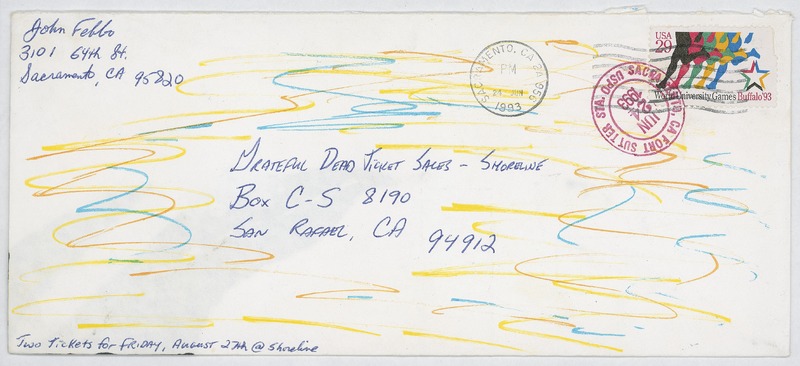 John Febbo
3101 64th St.
Sacramento, CA 95820
SACRAMENTO, CA 956
PM
1993
USA
29
World University Games Buffalo '93
USPO SACRAMENTO, CA FORT SUTTER STA.
JUN
1993
Grateful Dead Ticket Sales - Shoreline
Box C-S 8190
San Rafael, CA 94912
Two tickets for Friday, August 27th @ Shoreline